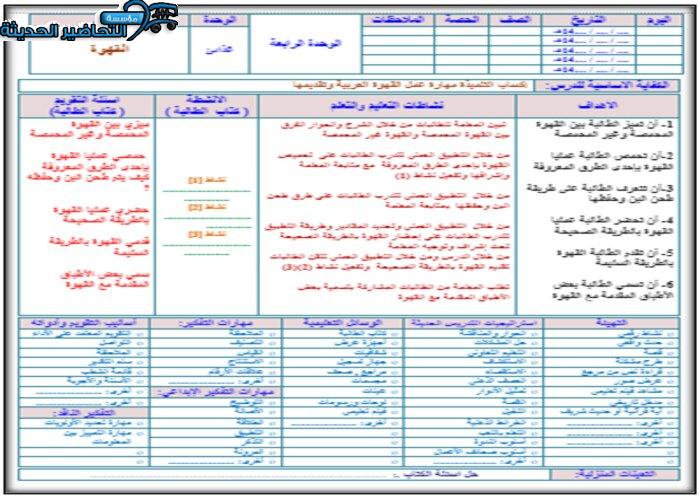 مؤسسة
التحاضير الحديثة
اليوم
التاريخ
الصف
الحصة
الملاحظات
الوحدة الرابعة
الوحدة
غذائي
القهوة
الكفاية الأساسية للدرس:
إكساب التلميذة مهارة عمل القهوة العربية وتقديمها
الأهداف
نشاطات التعليم والتعلم
الأنشطة
( كتاب الطالبة )
أسئلة التقويم
( كتاب الطالبة)
1- أن تميز الطالبة بين القهوة
المحمصة وغير المحمصة
2-أن تحمص الطالبة عمليا
القهوة بإحدى الطرق المعروفة
3-أن تتعرف الطالبة على طريقة
طحن البن وحفظها
4- أن تحضر الطالبة عمليا
القهوة بالطريقة الصحيحة
5- أن تقدم الطالبة القهوة
بالطريقة السليمة
6- أن تسمي الطالبة بعض
الأطباق المقدمة مع القهوة
تبين المعلمة للطالبات من خلال الشرح والحوار الفرق
بين القهوة المحمصة والقهوة غير المحمصة
من خلال التطبيق العملي تتدرب الطالبات على تحميص
القهوة بإحدى الطرق المعروفة مع متابعة المعلمة
وإشرافها وتفعيل نشاط (1)
من خلال التطبيق العملي تتدرب الطالبات على طرق طحن
البن وحفظها بمتابعة المعلمة
من خلال التطبيق العملي وتحديد المقادير وطريقة التطبيق
تتدرب الطالبات على إحضار القهوة بالطريقة الصحيحة
تحت إشراف وتوجيه المعلمة
من خلال الدرس ومن خلال التطبيق العملي تتقن الطالبات
تقديم القهوة بالطريقة الصحيحة وتفعيل نشاط (2)(3)
تطلب المعلمة من الطالبات المشاركة بتسمية بعض
الأطباق المقدمة مع القهوة
نشاط (1)
نشاط (2)
نشاط (3)
ميزي بين القهوة
المحمصة وغير المحمصة
حمصي عمليا القهوة
بإحدى الطرق المعروفة
كيف يتم طحن البن وحفظه
؟
حضري عمليا القهوة
بالطريقة الصحيحة
قدمي القهوة بالطريقة
السليمة
سمي بعض الأطباق
المقدمة مع القهوة
التهيئة
نشاط رقم
حدث واقعي
قصة
طرح مشكلة
قراءة نص من مرجع
عرض صور
مشاهد فيلم تعليمي
مدخل تاريخي
آية قرآنية أو حديث شريف
أخرى:
استراتيجيات التدريس الحديثة
الحوار والمناقشة
حل المشكلات
التعليم التعاوني
الاستكشاف
الاستقصاء
العصف الذهني
تمثيل الأدوار
التخيل
الخرائط الذهنية
التعلم باللعب
أسلوب الندوة
أسلوب صحائف الأعمال
أخرى:
الوسائل التعليمية
كتاب الطالبة
أجهزة عرض
شفافيات
جهاز تسجيل
مراجع , صحف
مجسمات
عينات
لوحات ورسومات
فيلم تعليمي
أخرى:
مهارات التفكير:
الملاحظة
التصنيف
القياس
الاستنتاج
علاقات الأرقام
أخرى:
مهارات التفكير الإبداعي:
التوضيح
الأصالة
الطلاقة
التطبيق
التذكر
المرونة
أخرى:
أساليب التقويم وأدواته
التقويم المعتمد على الأداء
التواصل
الملاحظة
سلم التقدير
قائمة الشطب
الأسئلة والأجوبة
أخرى:
التفكير الناقد:
مهارة تحديد الأولويات
مهارة التمييز بين
المعلومات
التعيينات المنزلية:
حل أسئلة الكتاب